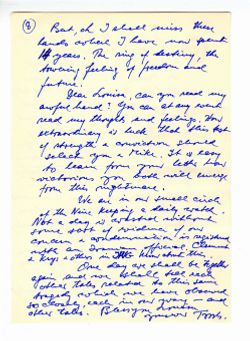 8
But, oh I shall miss these
hands which I have now spent
14 years. The ring of destiny, the
towering feeling of freedom and
future.
Dear Louisa, can you read my
awful hand? You can at any event
read my thoughts and feelings. How
extraordinary is luck that this test
of strength & conviction should
select you & Mike. It is easy
to learn from your letter how
victorious you both will emerge
from this nightmare.
We are in our small circle
of the Nine keeping a daily watch.
Not a day is without
some sort of evidence of our
concern &
with
& others in
One day we shall be together
again and we shall tell each
other tales related to this same
tragedy which we have observed
so closely, each in our way — and
other tales. Bless you Louisa